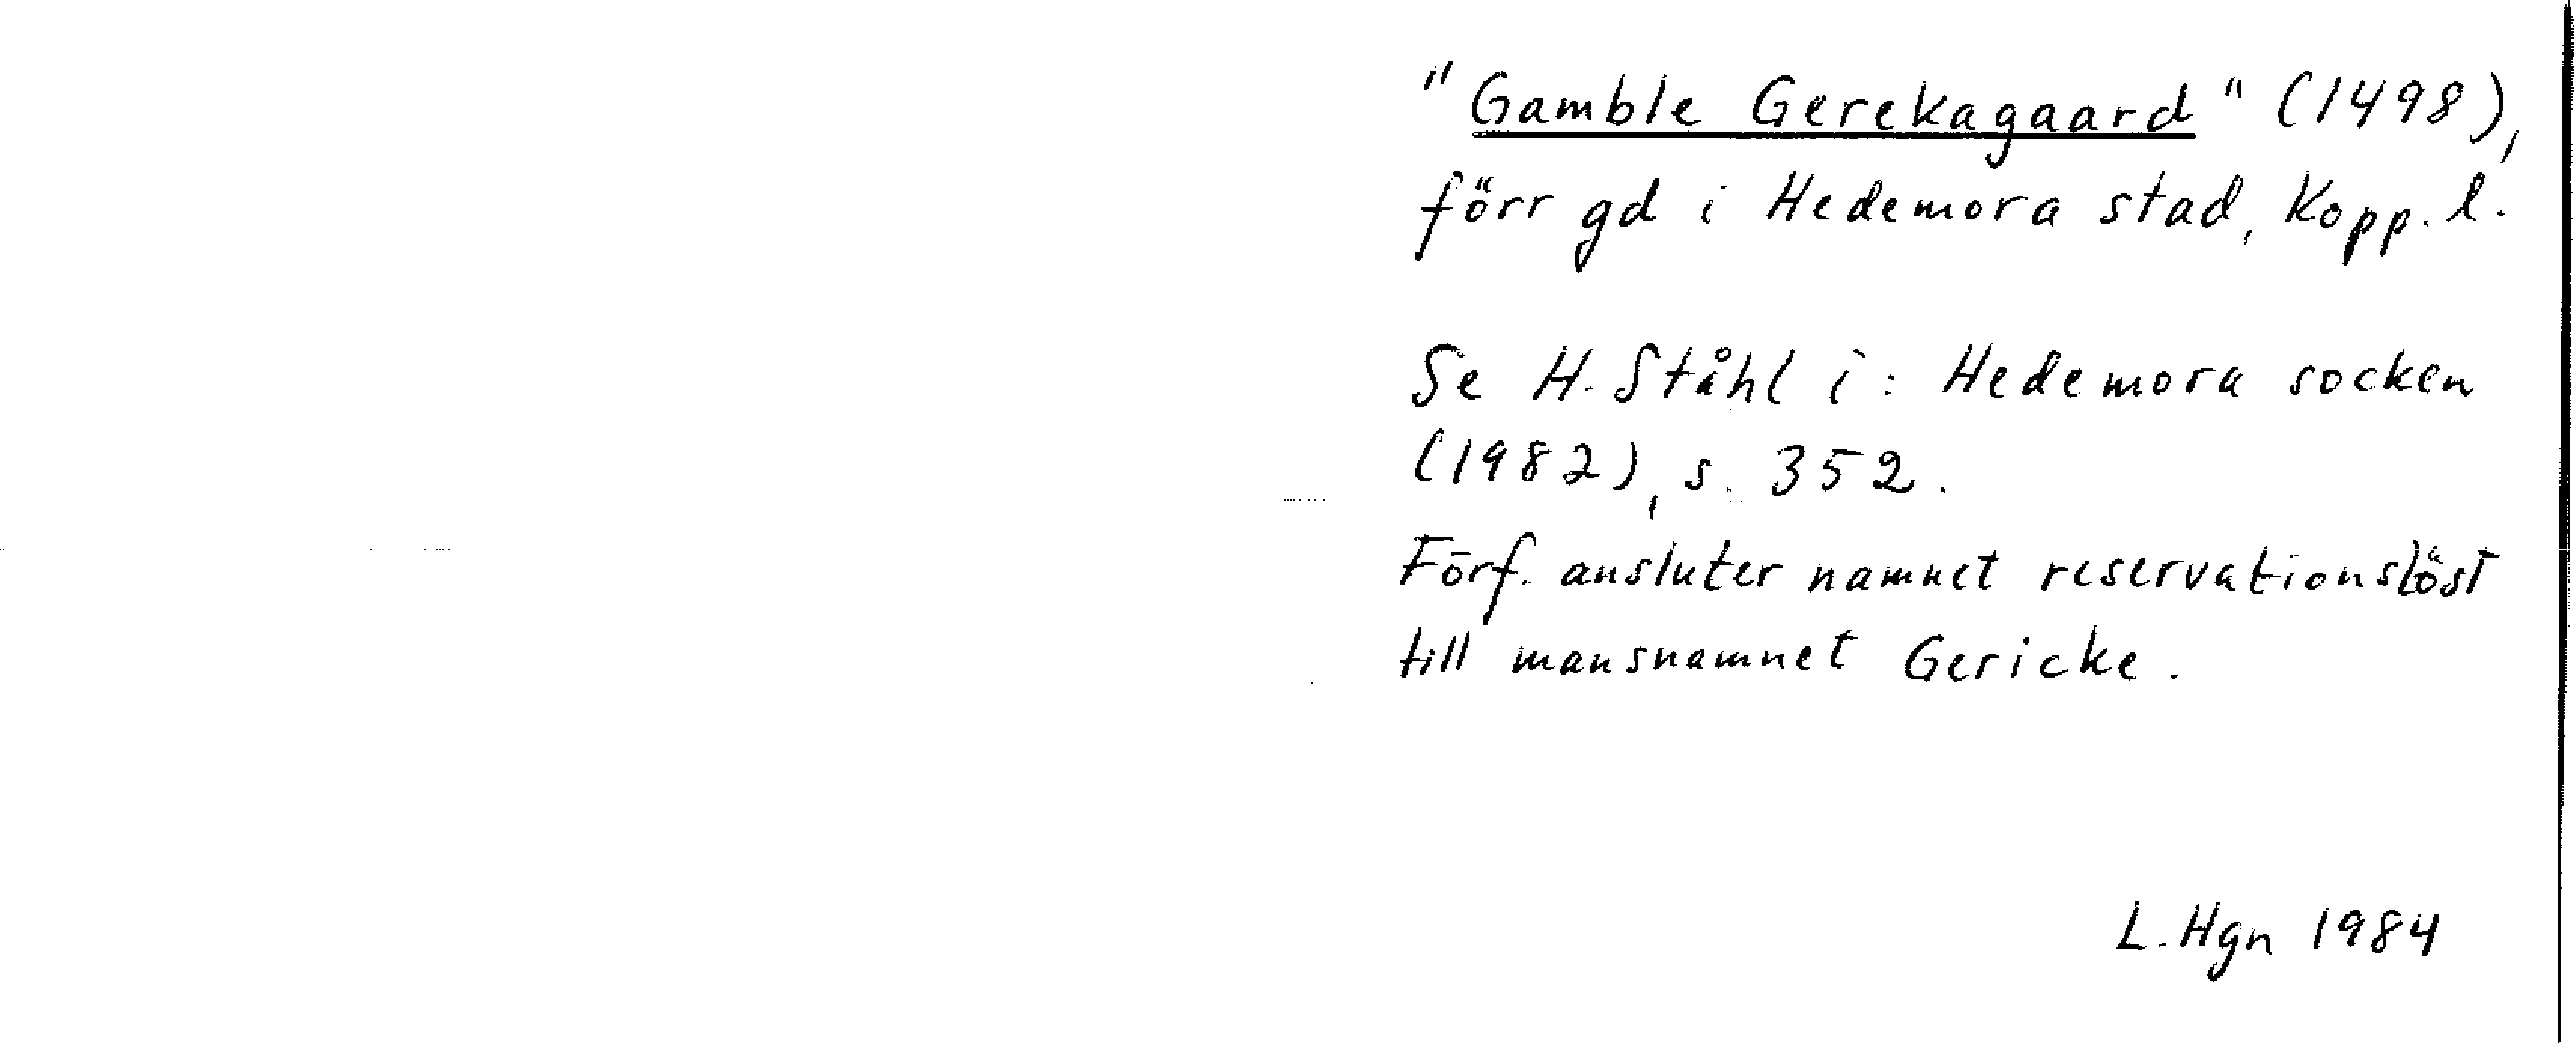 "Gamble Gerekagaard" (1498),
förr gd i Hedemora stad, Kopp. l.
Se H. Ståhl i: Hedemora socken
(1982), s. 352.
Förf. ansluter namnet reservationslöst
till mansnamnet Gericke.
L. Hgn 1984